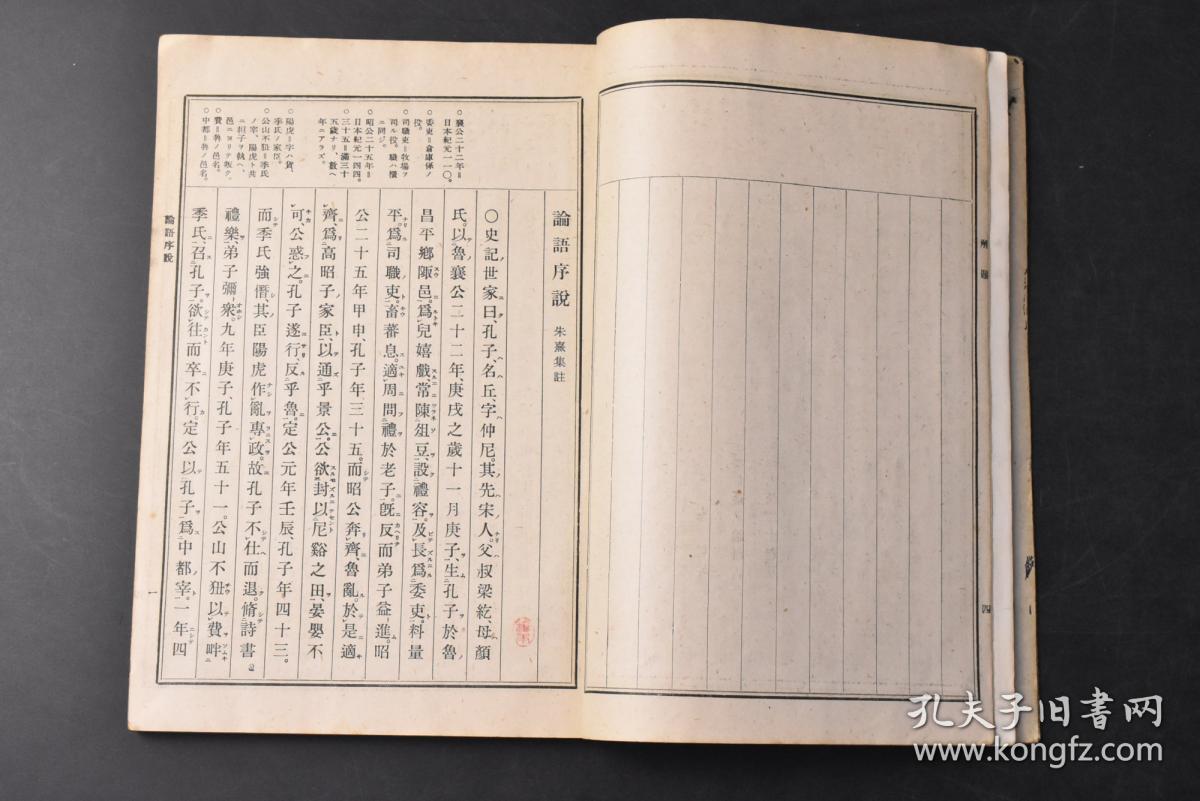 解題
四
論語序說 朱熹集註
○史記世家曰、孔子、名丘、字仲尼。其先宋人。父叔梁紇、母顏
氏。以魯襄公二十二年、庚戌之歲十一月庚子、生孔子於魯
昌平鄉陬邑。爲兒嬉戲、常陳俎豆、設禮容。及長爲委吏。料量
平。爲司職吏。畜蕃息。適周問禮於老子。旣反而弟子益進。昭
公二十五年甲申、孔子年三十五。而昭公奔齊、魯亂。於是適
齊、爲高昭子家臣、以通乎景公。公欲封以尼谿之田、晏嬰不
可、公惑之。孔子遂行、反乎魯。定公元年壬辰、孔子年四十三。
而季氏強僭、其臣陽虎作亂專政。故孔子不仕而退。脩詩書
禮樂、弟子彌衆。九年庚子、孔子年五十一。公山不狃以費畔
季氏、召孔子。欲往而卒不行。定公以孔子爲中都宰。一年四
○襄公二十二年＝
日本紀元一一〇。
○委吏＝倉庫係ノ
役。
○司職吏＝牧場ヲ
司ル役。職ハ樴
ニ同ジ。
○昭公二十五年＝
日本紀元一四四。
三十五＝滿三十
五歲ナリ、數へ
年ニアラズ。
○陽虎＝字ハ貨、
季氏ノ家臣。
○公山不狃＝季氏
ノ宰、陽虎ト共
ニ桓子ヲ執ヘ、
邑ニヨリテ叛ク。
○費＝魯ノ邑名。
○中都＝魯ノ邑名。
論語序說
一
孔夫子旧书网
www.kongfz.com